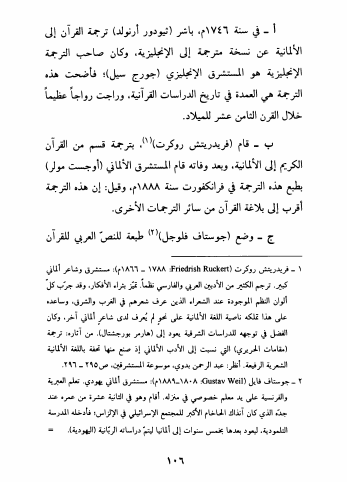 أ ـ في سنة ١٧٤٦م، باشر (ثيودور أرنولد) ترجمة القرآن إلى
الألمانية عن نسخة مترجمة إلى الإنجليزية، وكان صاحب الترجمة
الإنجليزية هو المستشرق الإنجليزي (جورج سيل)؛ فأضحت هذه
الترجمة هي العمدة في تاريخ الدراسات القرآنية، وراجت رواجاً عظيماً
خلال القرن الثامن عشر للميلاد.
ب ـ قام (فريدريتش روكرت)(١)، بترجمة قسم من القرآن
الكريم إلى الألمانية، وبعد وفاته قام المستشرق الألماني (أوجست مولر)
بطبع هذه الترجمة في فرانكفورت سنة ١٨٨٨م، وقيل: إن هذه الترجمة
أقرب إلى بلاغة القرآن من سائر الترجمات الأخرى.
ج ـ وضع (جوستاف فلوجل)(٢) طبعة للنصّ العربي للقرآن
١ ـ فريدريتش روكرت (Friedrish Ruckert: ١٧٨٨ ـ ١٨٦٦م): مستشرق وشاعر ألماني
كبير. ترجم الكثير من الأدبين العربي والفارسي نظماً. تميّز بثراء الأفكار، وقد جرب كلّ
ألوان النظم الموجودة عند الشعراء الذين عرف شعرهم في الغرب والشرق، وساعده
على هذا تملكه ناصية اللغة الألمانية على نحو لم يُعرف لدى شاعر ألماني آخر، وكان
الفضل في توجهه للدراسات الشرقية يعود إلى (هارمر بورجشتال). من آثاره: ترجمة
(مقامات الحريري) التي نسبت إلى الأدب الألماني إذ صنع منها تحفة باللغة الألمانية
الشعرية الرفيعة. أنظر: عبد الرحمن بدوي، موسوعة المستشرقين، ص٢٩٥ ـ ٢٩٦.
٢ ـ جوستاف فايل (Gustav Weil: ١٨٠٨ـ١٨٨٩م): مستشرق ألماني يهودي. تعلم العبرية
والفرنسية على يد معلم خصوصي في منزله. أقام وهو في الثانية عشرة من عمره عند
جدّه الذي كان آنذاك الحاخام الأكبر للمجتمع الإسرائيلي في الإلزاس؛ فأدخله المدرسة
التلمودية، ليعود بعدها بخمس سنوات إلى ألمانيا ليتمّ دراساته الربّانية (اليهودية). =
١٠٦